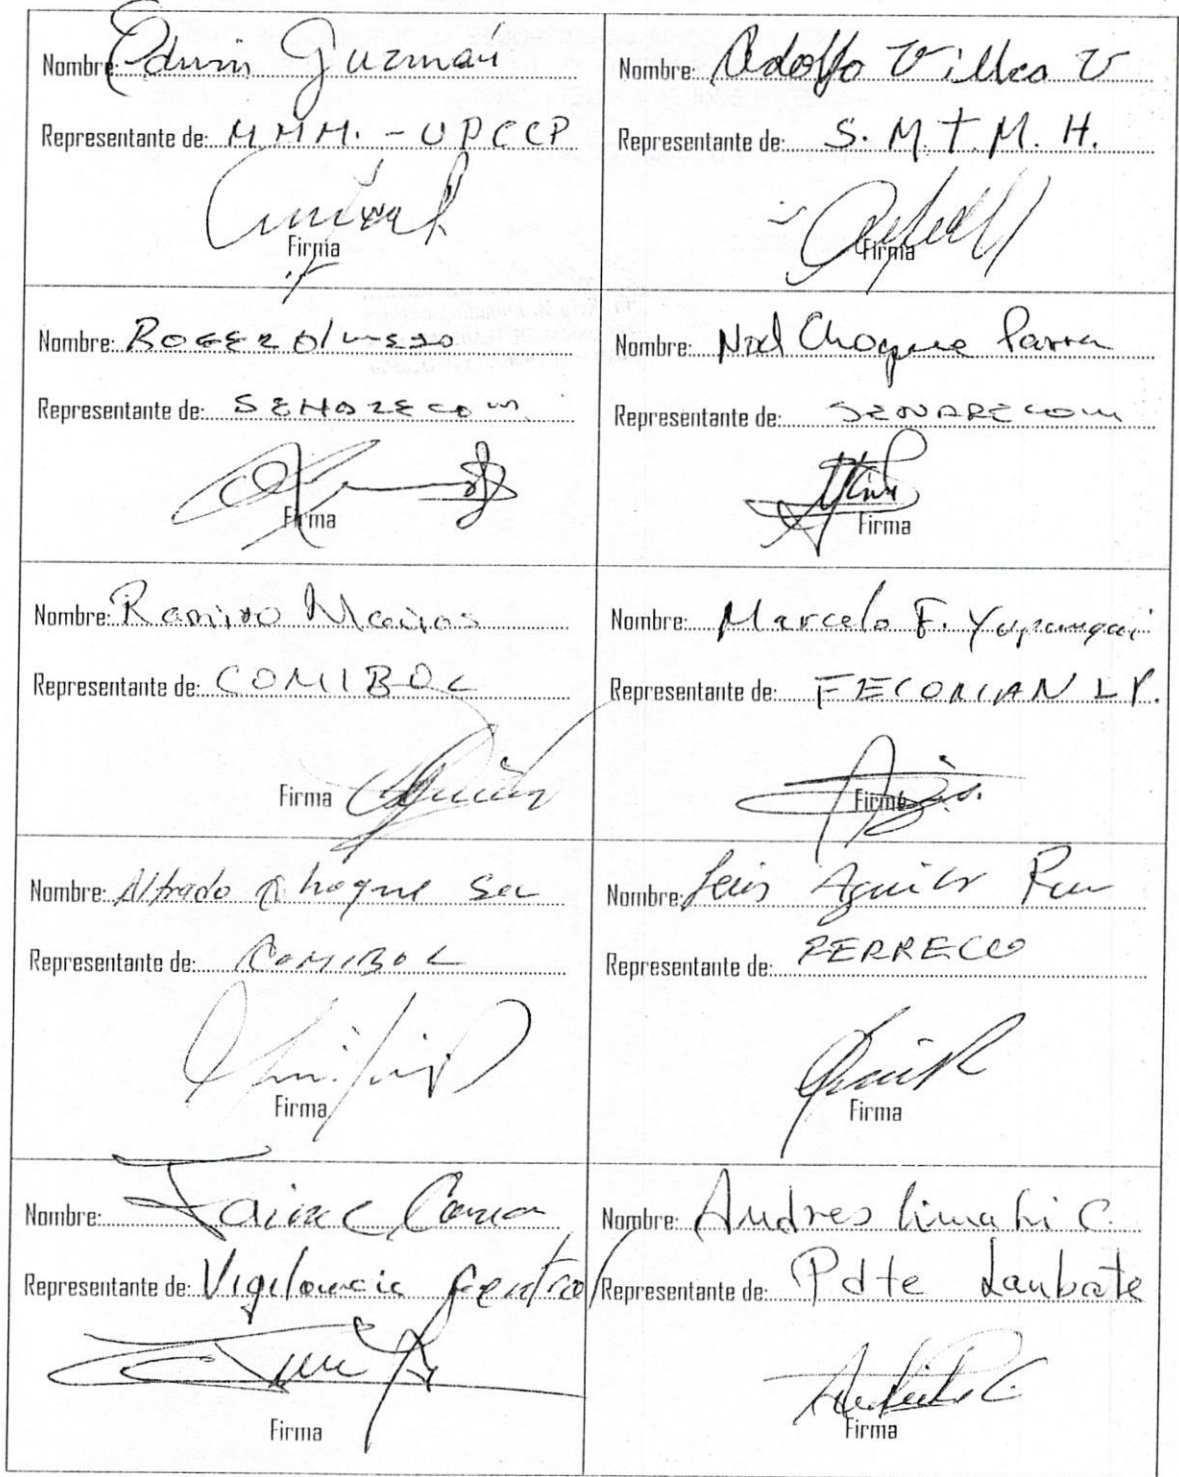 Nombre: Edwin Guzman
Representante de: M.M.M. - UPCCP
Firma
Nombre: Adolfo Villca V
Representante de: S. M. T. M. H.
Firma
Nombre: Roger
Representante de:
Firma
Nombre: Noel Choque Parra
Representante de: SENARECOM
Firma
Nombre: Ramiro
Representante de: COMIBOL
Firma
Nombre: Marcelo F. Yupanqui
Representante de: FECOMAN L.P.
Firma
Nombre: Alfredo Choque
Representante de: COMIBOL
Firma
Nombre: Luis Aguilar
Representante de: FERRECO
Firma
Nombre: Jaime
Representante de: Vigilancia Central
Firma
Nombre: Andres Limachi C.
Representante de: Pdte
Firma